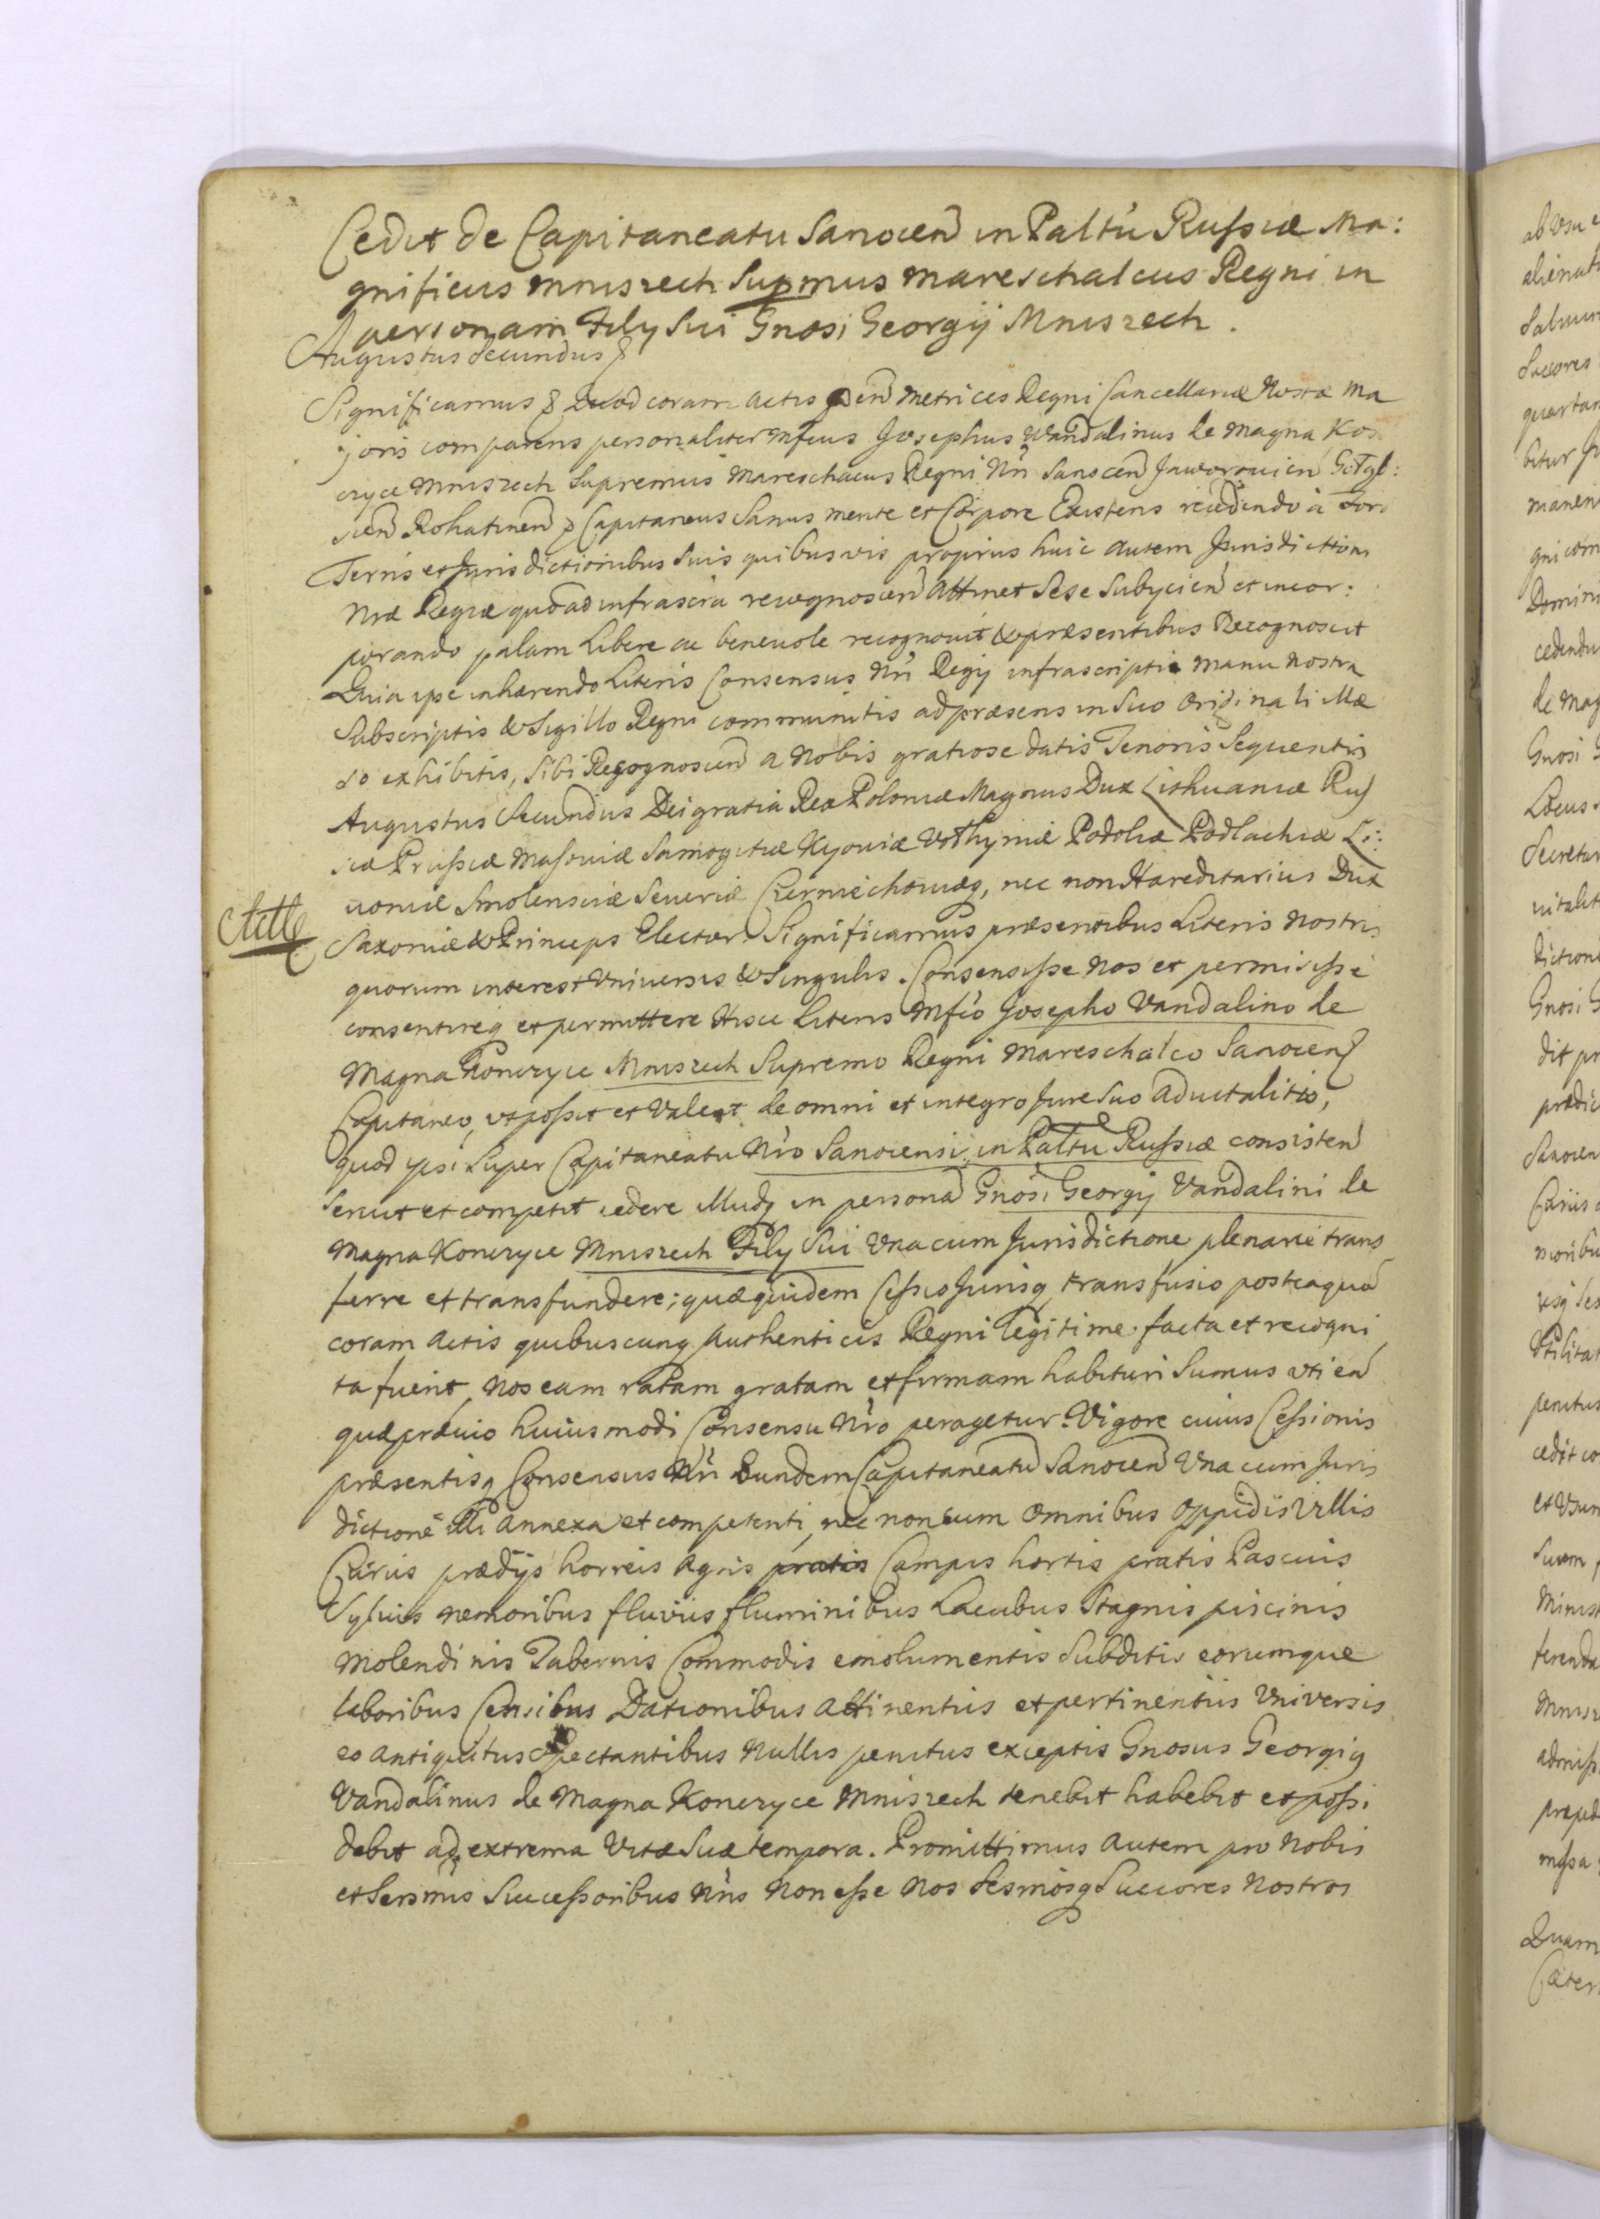 Cedit de Capitaneatu Sanocen in Paltu Russiæ Ma:
gnificus Mniszech Supmus Mareschalcus Regni in
personam Filij Sui Gnosi Georgij Mniszech.
Augustus Secundus &
Significamus & Quod coram Actis pñ Metrices Regni Cancellariæ Nostræ Ma
joris comparens personaliter Mfcus Josephus Vandalinus de Magna Kon
czyce Mniszech Supremus Mareschacus Regni Nri Sanocen Jaworovien
scien Rohatinen & Capitaneus Sanus mente et Corpore Existens recedendo à Foro
Terris et Jurisdictionibus Suis quibusvis propriis huic autem Jurisdictioni
Nræ Regiæ quoad infrascra recognoscen Attinet Sese Subijcien et incor:
porando palam Libere ac benevole recognovit & præsentibus Recognoscit
Quia ipse inhærendo Literis Consensus Nri Regij infrascripti manu Nostra
Subscriptis & Sigillo Regni communitis ad præsens in Suo Originali illæ
so exhibitis, Sibi Recognoscen a Nobis gratiose datis Tenoris Sequentis
Augustus Secundus Dei gratia Rex Poloniæ Magnus Dux Lithuaniæ Rus
siæ Prussiæ Masoviæ Samogitiæ Kyoviæ Volhyniæ Podoliæ Podlachiæ Li:
voniæ Smolensciæ Severiæ Czerniechoviæq, nec non Hæreditarius Dux
Saxoniæ & Princeps Elector. Significamus præsentibus Literis Nostris
quorum interest Universis & Singulis. Consensisse Nos et permisisse
consentireq et permittere Hisce Literis Mfco Josepho Vandalino de
Magna Konczyce Mniszech Supremo Regni Mareschalco Sanocen
Capitaneo, ut possit et Valeat de omni et integro Jure Suo Advitalitio,
quod ipsi Super Capitaneatu Nro Sanocensi in Paltu Russiæ consisten
Servit et competit cedere illudq in persona Gnosi Georgij Vandalini de
Magna Konczyce Mniszech Filij Sui Vna cum Jurisdictione plenarie trans
ferre et transfundere; quæ quidem Cessio Jurisq transfusio posteaquã
coram Actis quibuscunq Authenticis Regni Legitime facta et recogni
ta fuerit, Nos eam ratam gratam et firmam habituri Sumus uti eã
quæ prævio huiusmodi Consensu Nro peragetur. Vigore cuius Cessionis
præsentisq Consensus Nri Eundem Capitaneatũ Sanocen Vna cum Juris
dictionẽ illi Annexa et competenti, nec non cum Omnibus Oppidis Villis
Curiis prædijs horreis Agris pratis Campis hortis pratis Pascuis
Sylvis nemoribus fluviis fluminibus Lacubus Stagnis piscinis
Molendinis Tabernis Commodis emolumentis Subditis eorumque
laboribus Censibus Dationibus Attinentiis et pertinentiis Universis
eo antiquitus Spectantibus Nullis penitus exceptis Gnosus Georgig
Vandalinus de Magna Konczyce Mniszech tenebit habebit et possi
debit ad extrema Vitæ Suæ tempora. Promittimus autem pro Nobis
et Sersmis Successoribus Nris Non esse Nos Sersmosq Succores Nostros
Actle